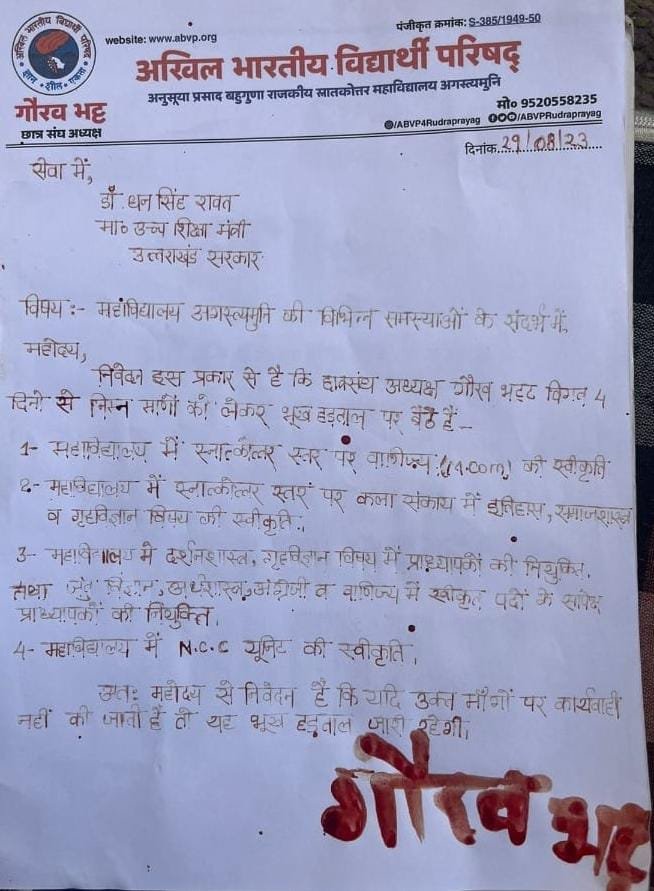 पंजीकृत क्रमांक: S-385/1949-50
अखिल भारतीय विद्यार्थी परिषद
ज्ञान शील एकता
website: www.abvp.org
अखिल भारतीय विद्यार्थी परिषद्
अनुसूया प्रसाद बहुगुणा राजकीय स्नातकोत्तर महाविद्यालय अगस्त्यमुनि
गौरव भट्ट
छात्र संघ अध्यक्ष
मो० 9520558235
@/ABVP4Rudraprayag /ABVPRudraprayag
दिनांक 29/08/23
सेवा में,
डॉ धन सिंह रावत
मा० उच्च शिक्षा मंत्री
उत्तराखंड सरकार
विषय :- महाविद्यालय अगस्त्यमुनि की विभिन्न समस्याओं के संदर्भ में,
महोदय,
निवेदन इस प्रकार से है कि छात्रसंघ अध्यक्ष गौरव भट्ट विगत 4
दिनों से निम्न मांगों को लेकर भूख हड़ताल पर बैठे हैं -
1- महाविद्यालय में स्नातकोत्तर स्तर पर वाणिज्य (M.com) की स्वीकृति
2- महाविद्यालय में स्नातकोत्तर स्तर पर कला संकाय में इतिहास, समाजशास्त्र
व गृहविज्ञान विषय की स्वीकृति,
3- महाविद्यालय में दर्शनशास्त्र, गृहविज्ञान विषय में प्राध्यापकों की नियुक्ति,
तथा जंतु विज्ञान, अर्थशास्त्र, अंग्रेजी व वाणिज्य में स्वीकृत पदों के सापेक्ष
प्राध्यापकों की नियुक्ति,
4- महाविद्यालय में N.C.C यूनिट की स्वीकृति,
अतः महोदय से निवेदन है कि यदि उक्त माँगों पर कार्यवाही
नहीं की जाती है तो यह भूख हड़ताल जारी रहेगी,
गौरव भट्ट